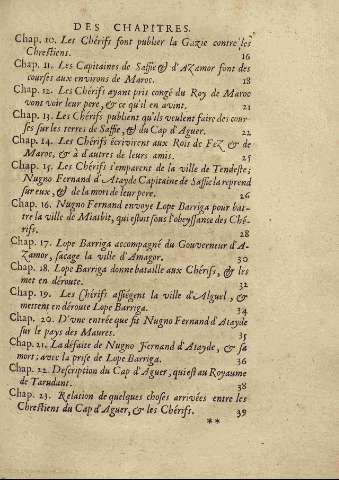 DES CHAPITRES.
Chap. 10. Les Chérifs font publier la Gazie contre les
Chrestiens. 16
Chap. 11. Les Capitaines de Saffie, & d'Azamor font des
courses aux environs de Maroc. 18
Chap. 12. Les Chérifs ayant pris congé du Roy de Maroc
vons voir leur pere, & ce qu'il en avint. 21
Chap. 13. Les Chérifs publient qu'ils veulent faire des cour-
ses sur les terres de Saffie, & du Cap d'Aguer. 22
Chap. 14. Les Chérifs écrivirent aux Rois de Fez & de
Maroc, & à d'autres de leurs amis. 25
Chap. 15. Les Chérifs s'emparent de la ville de Tendeste;
Nugno Fernand d'Atayde Capitaine de Saffie la reprend
sur eux, & de la mort de leur pere. 26
Chap. 16. Nugno Fernand envoye Lope Barriga pour bat-
tre la ville de Miatbit, qui estoit sous l'obeyssance des Ché-
rifs. 28
Chap. 17. Lope Barriga accompagné du Gouverneur d'A-
zamor, saçage la ville d'Amagor. 30
Chap. 18. Lope Barriga donne bataille aux Chérifs, & les
met en déroute. 32
Chap. 19. Les Chérifs assiégent la ville d'Alguel, &
mettent en déroute Lope Barriga. 34
Chap. 20. D'une entrée que fit Nugno Fernand d'Atayde
sur le pays des Maures. 35
Chap. 21. La défaite de Nugno Fernand d'Atayde, & sa
mort; avec la prise de Lope Barriga. 36
Chap. 22. Description du Cap d'Aguer, qui est au Royaume
de Tarudant. 38
Chap. 23. Relation de quelques choses arrivées entre les
Chrestiens du Cap d'Aguer, & les Chérifs. 39
**